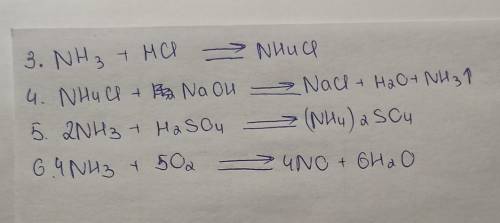 3. NH3 + HCl ⇒ NH4Cl
4. NH4Cl + NaOH ⇒ NaCl + H2O + NH3↑
5. 2NH3 + H2SO4 ⇒ (NH4)2SO4
6. 4NH3 + 5O2 ⇒ 4NO + 6H2O